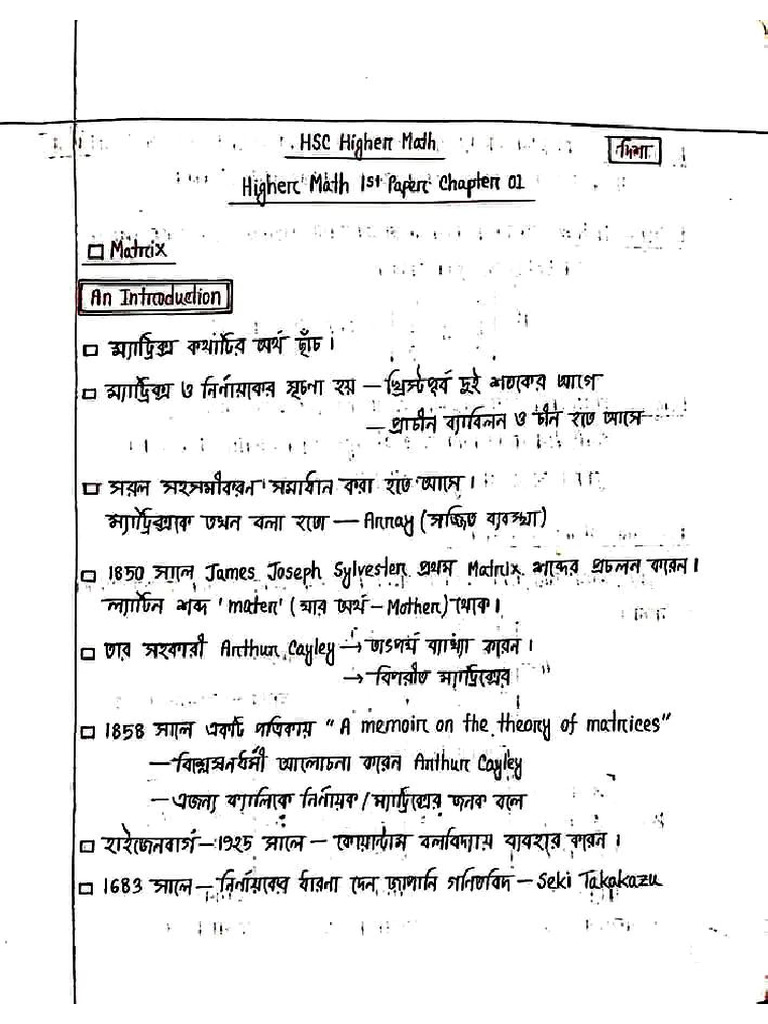 HSC Higher Math
দিশা
Higher Math 1st Paper Chapter 01
Matrix
An Introduction
ম্যাট্রিক্স কথাটির অর্থ ছাঁচ।
ম্যাট্রিক্স ও নির্ণায়কের সূচনা হয় — খ্রিস্টপূর্ব দুই শতকের আগে
— প্রাচীন ব্যাবিলন ও চীন হতে আসে
সরল সহসমীকরন সমাধান করা হতে আসে।
ম্যাট্রিক্সকে তখন বলা হতো — Array (সজ্জিত ব্যবস্থা)
1850 সালে James Joseph Sylvester প্রথম Matrix শব্দের প্রচলন করেন।
ল্যাটিন শব্দ 'mater' (যার অর্থ - Mother) থেকে।
তার সহকারী Arthur Cayley → তাৎপর্য ব্যাখ্যা করেন।
→ বিপরীত ম্যাট্রিক্সের "
1858 সালে একটি পত্রিকায় "A memoir on the theory of matrices"
— বিশ্লেষনধর্মী আলোচনা করেন Arthur Cayley
— এজন্য ক্যালিকে নির্ণায়ক/ম্যাট্রিক্সের জনক বলে
হাইজেনবার্গ — 1925 সালে — কোয়ান্টাম বলবিদ্যায় ব্যবহার করেন।
1683 সালে — নির্ণায়কের ধারনা দেন জাপানি গনিতবিদ — Seki Takakazu